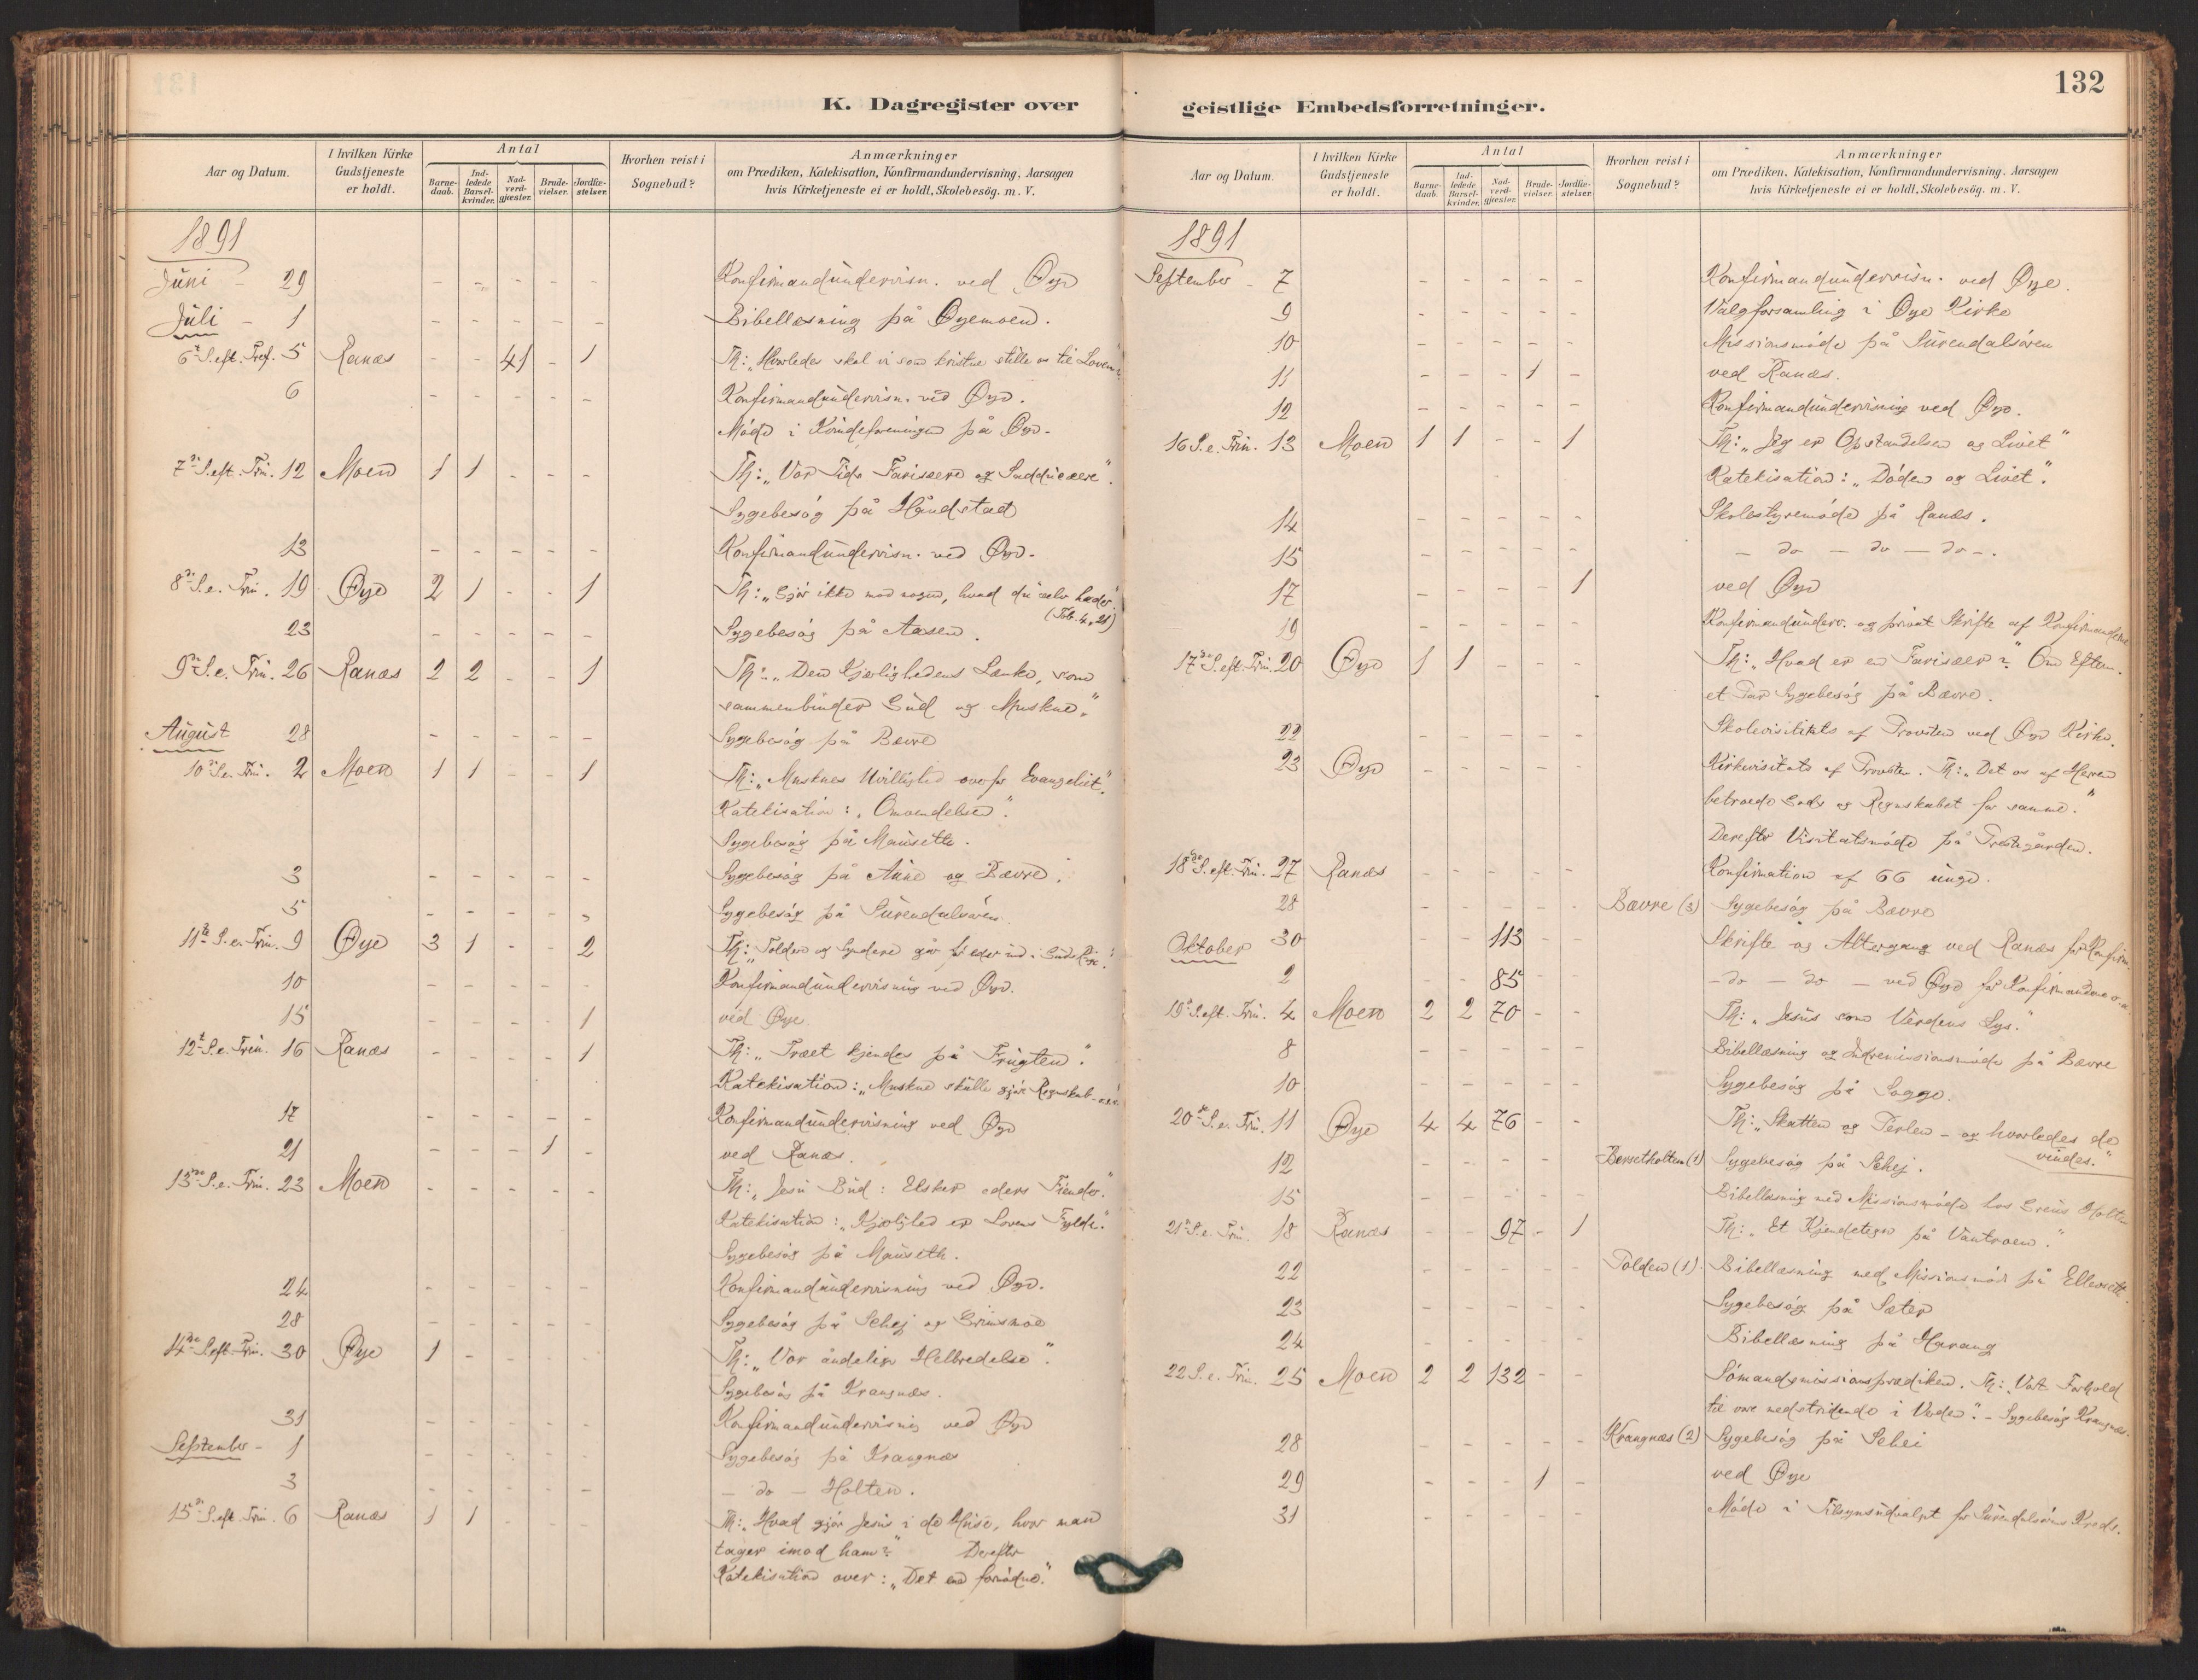 132
K. Dagregister over
geistlige Embedsforretninger.
Aar og Datum.
I hvilken Kirke Gudstjeneste er holdt.
Antal
Barnedaab.
Indledede Barselkvinder.
Nadverdgjæster.
Brudevielser.
Jordfæstelser.
Hvorhen reist i Sognebud?
Anmærkninger
om Prædiken, Katekisation, Konfirmandundervisning, Aarsagen
hvis Kirketjeneste ei er holdt, Skolebesøg. m. V.
1891
Juni - 29 - - - - - Konfirmandundervisn. ved Øye
Juli - 1 - - - - - Bibellæsning på Øyemoen.
6te S. eft. Tref. 5 Ranæs - - 41 - 1 Th: „Hvorledes skal vi som kristne stille os til Loven?
6 - - - - - Konfirmandundervisn. ved Øye.
Møde i Kvindeforeningen på Øye.
7de S. eft. Trin. 12 Moen 1 1 - - - Th: „Vor Tids Farisæere og Sadducæere".
Sygebesøg på Håndstad
13 - - - - - Konfirmandundervisn. ved Øye.
8de S. e. Trin. 19 Øye 2 1 - - 1 Th: „Gjør ikke mod nogen, hvad du selv hader.
(Tob. 4, 21)
23 - - - - - Sygebesøg på Aasen.
9de S. e. Trin. 26 Ranæs 2 2 - - 1 Th: „Den Kjærlighedens Lænke, som
sammenbinder Gud og Mnskne."
28 - - - - - Sygebesøg på Bævre
August
10de S. e. Trin. 2 Moen 1 1 - - 1 Th: „Mnsknes Uvillighed overfor Evangeliet".
Katekisation: „Omvendelsen".
Sygebesøg på Mauseth.
3 - - - - - Sygebesøg på Aune og Bævre.
5 - - - - - Sygebesøg på Surendalsøren
11te S. e. Trin. 9 Øye 3 1 - - 2 Th: „Toldere og Syndere går før eder ind i Guds Rige."
10 - - - - - Konfirmandundervisning ved Øye.
15 - - - - 1 ved Øye
12te S. e. Trin. 16 Ranæs - - - - 1 Th: „Træet kjendes på Frugten."
Katekisation: „Mnskne skulle gjøre Regnskab
17 - - - - - Konfirmandundervisning ved Øye
21 - - - 1 - ved Ranæs.
13de S. e. Trin. 23 Moen - - - - - Th: „Jesu Bud: Elsker eders Fiender."
Katekisation: „Kjærlighed er Lovens Fylde."
Sygebesøg på Mauseth.
24 - - - - - Konfirmandundervisning ved Øye.
28 - - - - - Sygebesøg på Schej og Grimsmoe
14de S. eft. Trin. 30 Øye 1 - - - - Th: „Vor åndelige Helbredelse".
Sygebesøg på Krangnæs.
31 - - - - - Konfirmandundervisning ved Øye
September - 1 - - - - - Sygebesøg på Krangnæs
3 - - - - - - do - Holten.
15de S. eft. Trin. 6 Ranæs 1 1 - - - Th: „Hvad gjør Jesus i de Huse, hvor man
tager imod ham?" Derefter
Katekisation over: „Det ene fornødne."
Aar og Datum.
I hvilken Kirke Gudstjeneste er holdt.
Antal
Barnedaab.
Indledede Barselkvinder.
Nadverdgjæster.
Brudevielser.
Jordfæstelser.
Hvorhen reist i Sognebud?
Anmærkninger
om Prædiken, Katekisation, Konfirmandundervisning. Aarsagen
hvis Kirketjeneste ei er holdt, Skolebesøg. m. V.
1891
September - 7 - - - - - Konfirmandundervisn. ved Øye.
9 - - - - - Valgforsamling i Øye Kirke
10 - - - - - Missionsmøde på Surendalsøren
11 - - - 1 - ved Ranæs.
12 - - - - - Konfirmandundervisning ved Øye.
16 S. e. Trin. 13 Moen 1 1 - - 1 Th: „Jeg er Opstandelsen og Livet"
Katekisation: „Døden og Livet".
14 - - - - - Skolestyremøde på Ranæs.
15 - - - - - - do - do - do -.
17 - - - - 1 ved Øye
19 - - - - - Konfirmandunderv. og privat Skrifte af Konfirmanderne
17de S. eft. Trin. 20 Øye 1 1 - - - Th: „Hvad er en Farisæer?" Om Efterm.
et Par Sygebesøg på Bævre.
22 - - - - - Skolevisitats af Provsten ved Øye Kirke.
23 Øye - - - - - Kirkevisitats af Provsten. Th: „Det os af Herren
betroede Gods og Regnskabet for samme."
Derefter Visitatsmøde på Prestegården.
18de S. eft. Trin. 27 Ranæs - - - - - Konfirmation af 66 unge.
28 - - - - - Bævre (3) Sygebesøg på Bævre
30 - - 113 - - Skrifte og Altergang ved Ranæs for Konfirm.
Oktober
2 - - 85 - - - do - do - ved Øye for Konfirmanderne o. a.
19de S. eft. Trin. 4 Moen 2 2 70 - - Th: „Jesus som Verdens Lys."
8 - - - - - Bibellæsning og Indremissionsmøde på Bævre
10 - - - - - Sygebesøg på Sogge.
20de S. e. Trin. 11 Øye 4 4 76 - - Th: „Skatten og Perlen - og hvorledes de
vindes."
12 - - - - Bersetholten (1) Sygebesøg på Schej.
15 - - - - - Bibellæsning med Missionsmøde hos Holten
21de S. e. Trin. 18 Ranæs - - 97 - 1 Th: „Et Kjendetegn på Vantroen."
22 - - - - - Polden (1). Bibellæsning med Missionsmøde på
23 - - - - - Sygebesøg på Sæter
24 - - - - - Bibellæsning på Harang
22 S. e. Trin. 25 Moen 2 2 132 - - Sømandsmissionsprædiken. Th: „Vort Forhold
til vore medstridende i Verden". - Sygebesøg Krangnæs.
28 - - - - - Krangnæs (2) Sygebesøg på Schei
29 - - - 1 - ved Øye
31 Møde i Tilsynsudvalget for Surendalsørens Kreds.